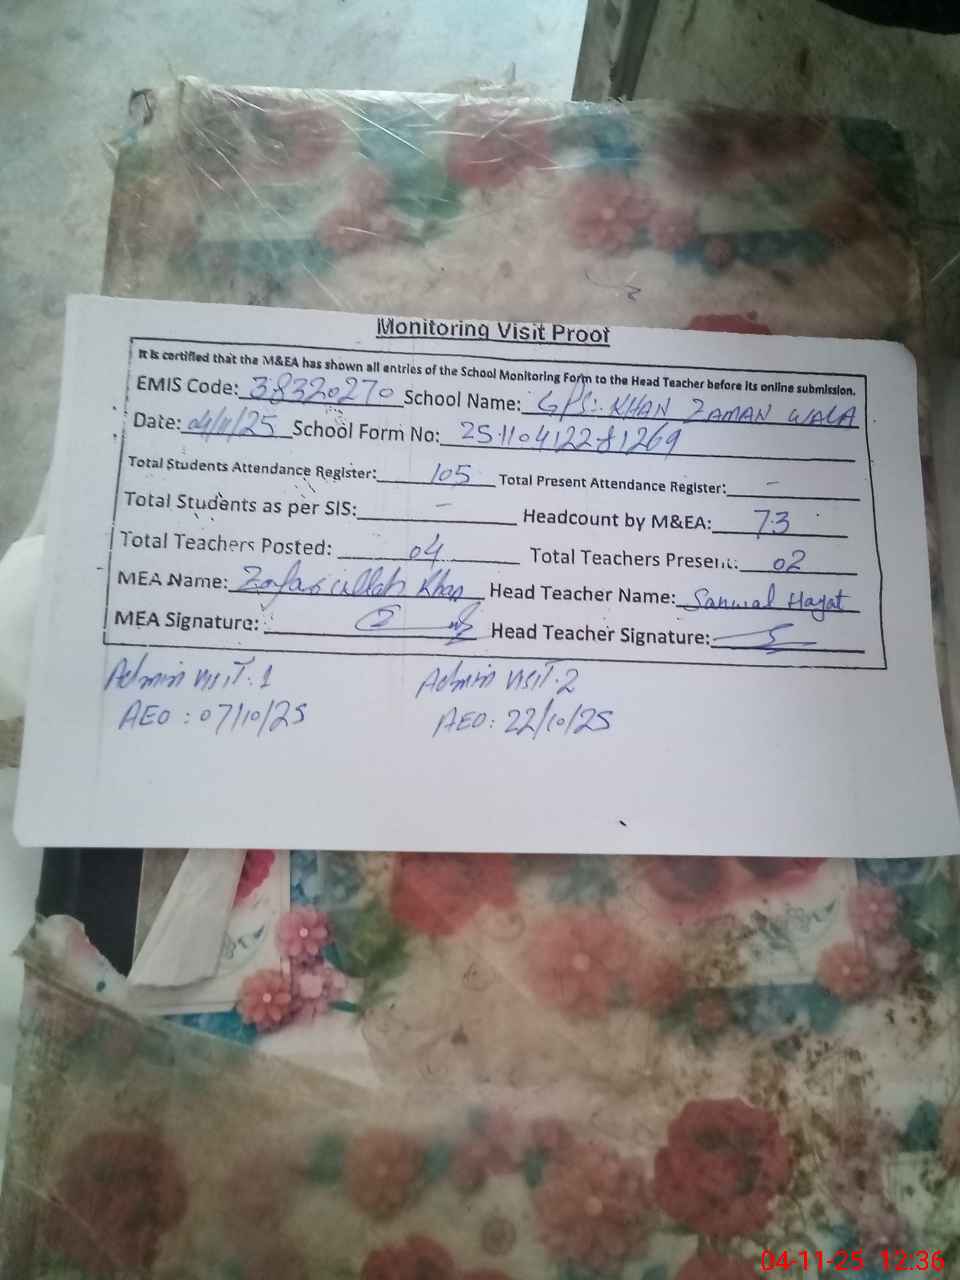 Monitoring Visit Proof
It is certified that the M&EA has shown all entries of the School Monitoring Form to the Head Teacher before its online submission.
EMIS Code: 38320270 School Name: GPS: KHAN ZAMAN WALA
Date: 04/11/25 School Form No: 25110412281269
Total Students Attendance Register: 105 Total Present Attendance Register: -
Total Students as per SIS: - Headcount by M&EA: 73
Total Teachers Posted: 04 Total Teachers Present: 02
MEA Name: Zafar ullah Khan Head Teacher Name: Sanwal Hayat
MEA Signature: Head Teacher Signature:
Admin visit.1 Admin visit.2
AEO : 07/10/25 AEO: 22/10/25
04-11-25 12:36